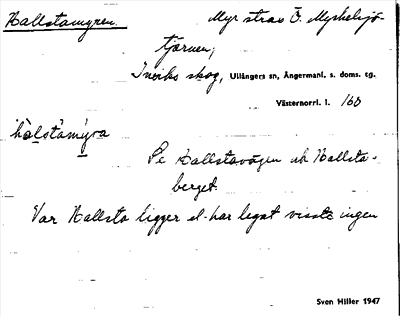 Hallstamyren. Myr strax Ö. Myckelsjö-
tjärnen;
skog, Ullångers sn, Ångermanl. s. doms. tg.
Västernorrl. l. 160
hàlstàmỳra
Se Hallstavägen och Hallsta-
berget.
Var Hallsta ligger el. har legat visste ingen
Sven Hiller 1947